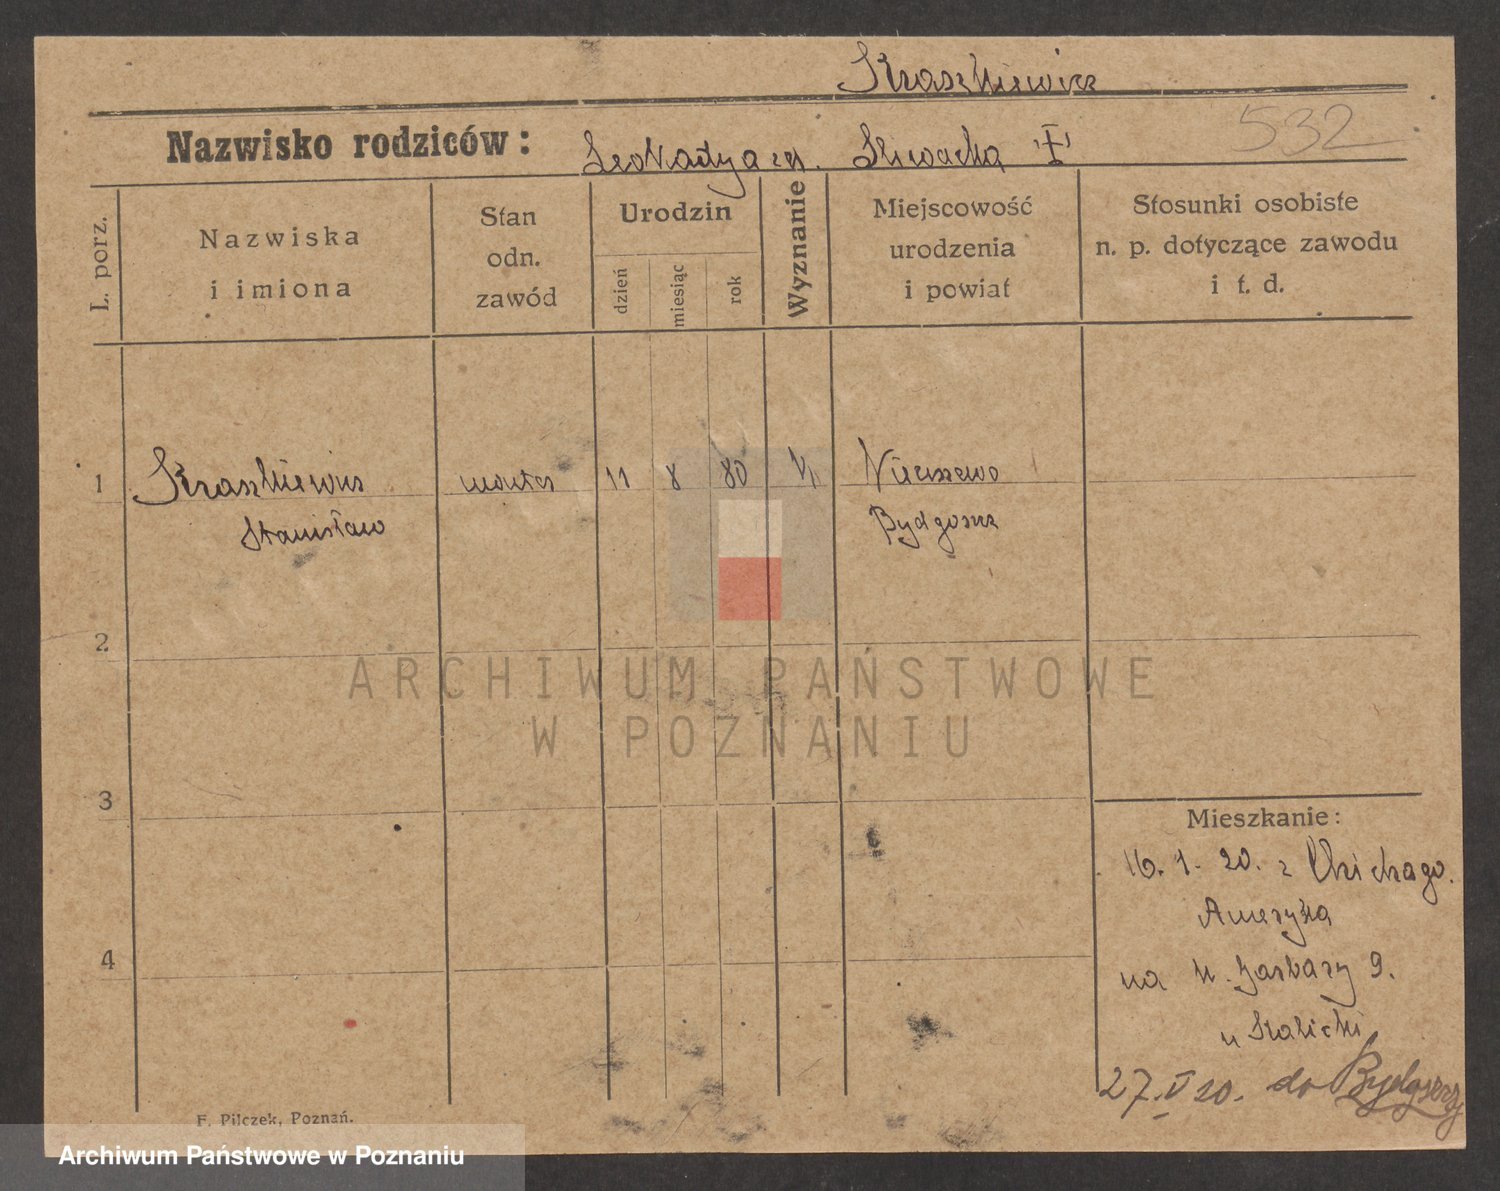 Kraszkiewicz
532
Nazwisko rodziców:
Leokadya
L. porz.
Nazwiska
i imiona
Stan
odn.
zawód
Urodzin
dzień
miesiąc
rok
Wyznanie
Miejscowość
urodzenia
i powiat
Stosunki osobiste
n. p. dotyczące zawodu
i t. d.
1
Kraszkiewicz
Stanisław
monter
11
8
80
Bydgoszcz
2
3
4
Mieszkanie:
16. 1. 20. z Chichago.
Ameryka
na 9.
u
27. V 20. do Bydgoszczy
F. Pilczek, Poznań.
ARCHIWUM PAŃSTWOWE
W POZNANIU
Archiwum Państwowe w Poznaniu